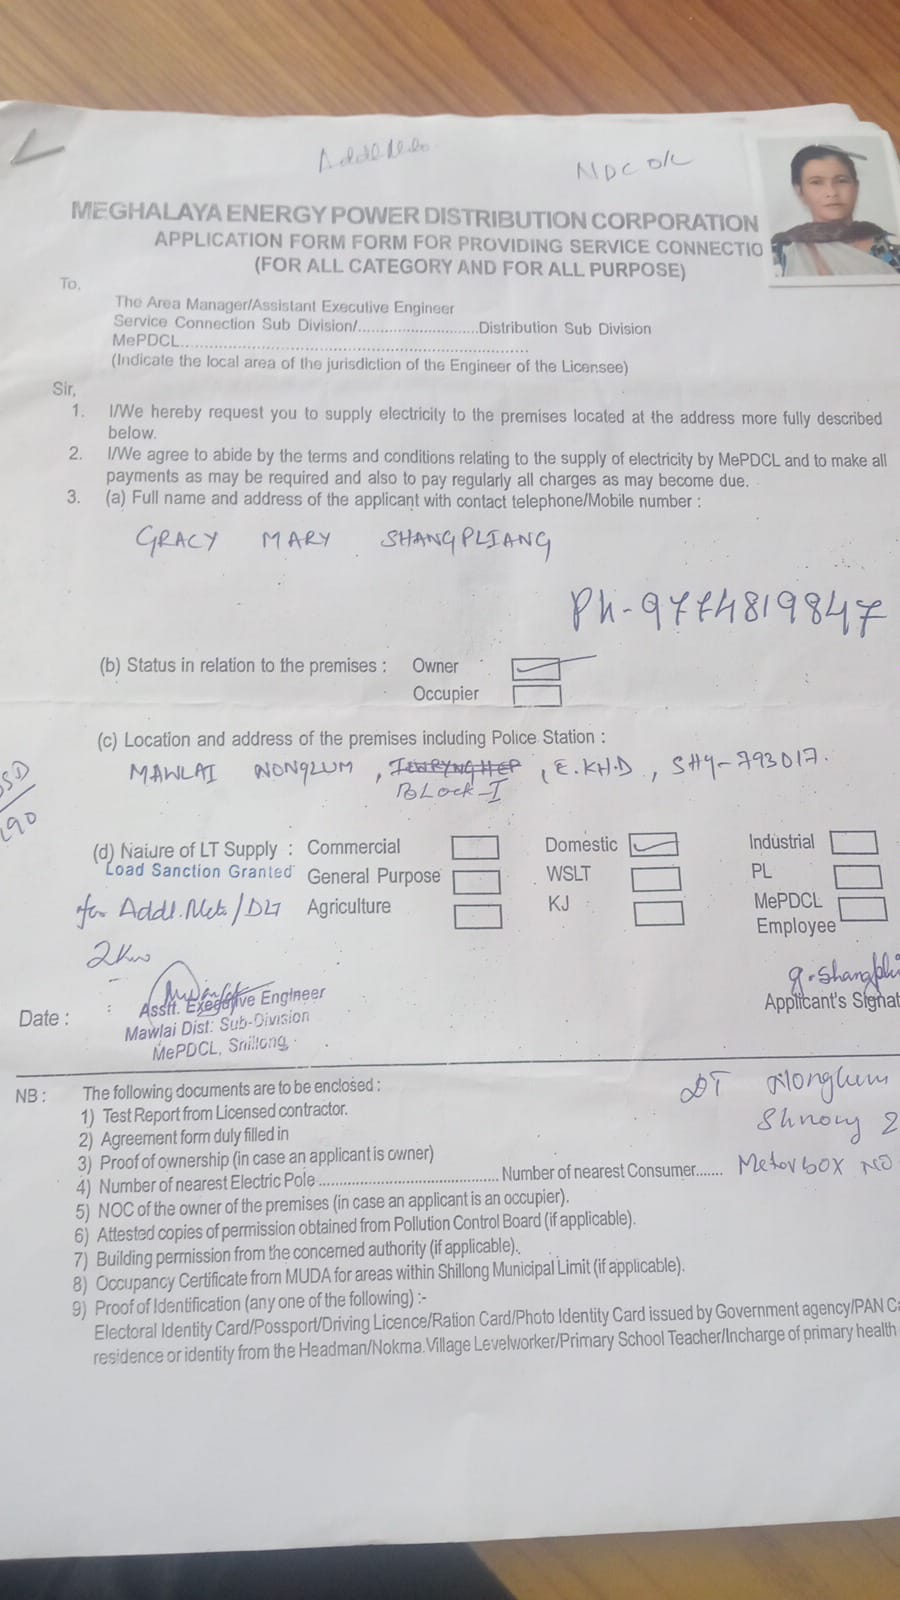 NDC o/c
MEGHALAYA ENERGY POWER DISTRIBUTION CORPORATION
APPLICATION FORM FORM FOR PROVIDING SERVICE CONNECTIO
(FOR ALL CATEGORY AND FOR ALL PURPOSE)
To,
The Area Manager/Assistant Executive Engineer
Service Connection Sub Division/............................Distribution Sub Division
MePDCL................................................................................
(Indicate the local area of the jurisdiction of the Engineer of the Licensee)
Sir,
1. I/We hereby request you to supply electricity to the premises located at the address more fully described
below.
2. I/We agree to abide by the terms and conditions relating to the supply of electricity by MePDCL and to make all
payments as may be required and also to pay regularly all charges as may become due.
3. (a) Full name and address of the applicant with contact telephone/Mobile number :
GRACY MARY SHANGPLIANG
Ph-9774819847
(b) Status in relation to the premises : Owner
Occupier
(c) Location and address of the premises including Police Station :
MAWLAI NONGLUM, , E.KH.D, SHG-793017.
BLOCK-I
(d) Naiure of LT Supply : Commercial Domestic Industrial
Load Sanction Granted General Purpose WSLT PL
for Addl. Agriculture KJ MePDCL
Employee
2Kw
Applicant's Signat
Date :
Asstt. Executive Engineer
Mawlai Dist: Sub-Division
MePDCL, Shillong
NB : The following documents are to be enclosed :
1) Test Report from Licensed contractor.
2) Agreement form duly filled in
3) Proof of ownership (in case an applicant is owner)
4) Number of nearest Electric Pole............................................Number of nearest Consumer.......
5) NOC of the owner of the premises (in case an applicant is an occupier).
6) Attested copies of permission obtained from Pollution Control Board (if applicable).
7) Building permission from the concerned authority (if applicable).
8) Occupancy Certificate from MUDA for areas within Shillong Municipal Limit (if applicable).
9) Proof of Identification (any one of the following) :-
Electoral Identity Card/Possport/Driving Licence/Ration Card/Photo Identity Card issued by Government agency/PAN Ca
residence or identity from the Headman/Nokma.Village Levelworker/Primary School Teacher/Incharge of primary health
DT Nonglum
Metor box NO